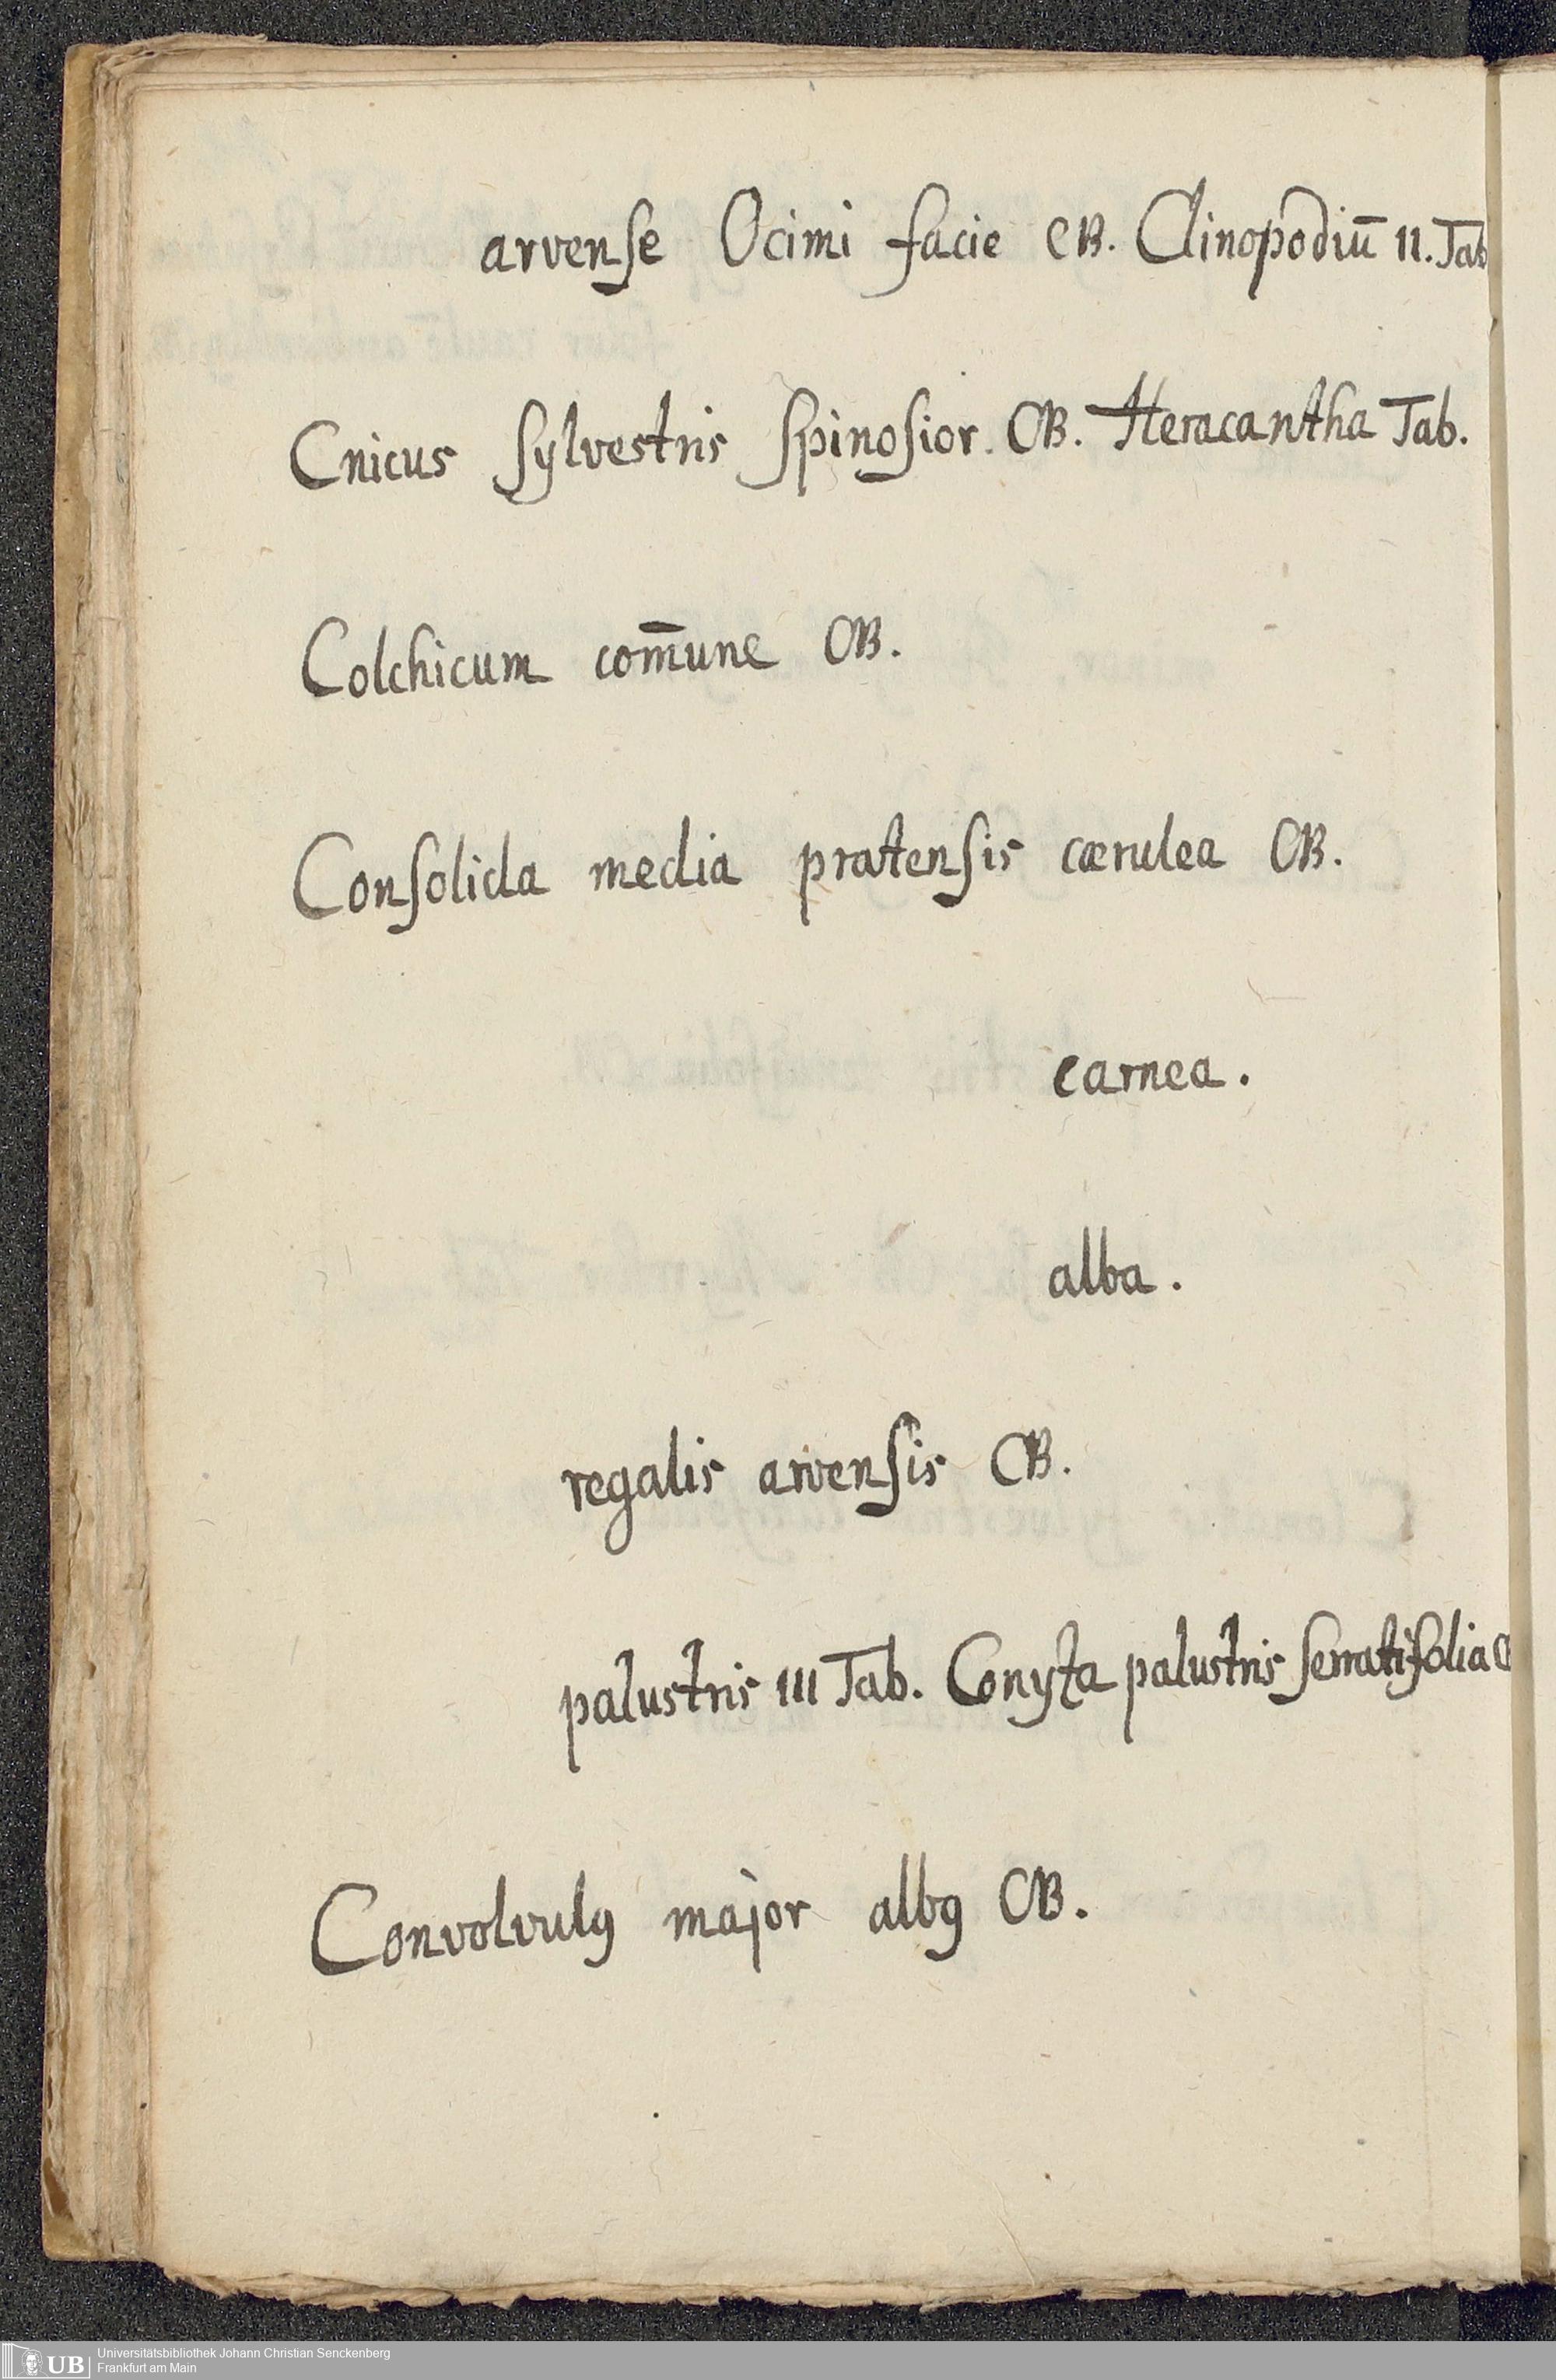 arvense Ocimi facie CB. Clinopodiū II. Tab
Cnicus sylvestris spinosior. CB. Heracantha Tab.
Colchicum com̄une CB.
Consolida media pratensis cærulea CB.
carnea.
alba.
regalis arvensis CB.
palustris III Tab. Conyza palustris serratifolia C
Convolvulꝯ major albꝯ CB.
UB
Universitätsbibliothek Johann Christian Senckenberg
Frankfurt am Main